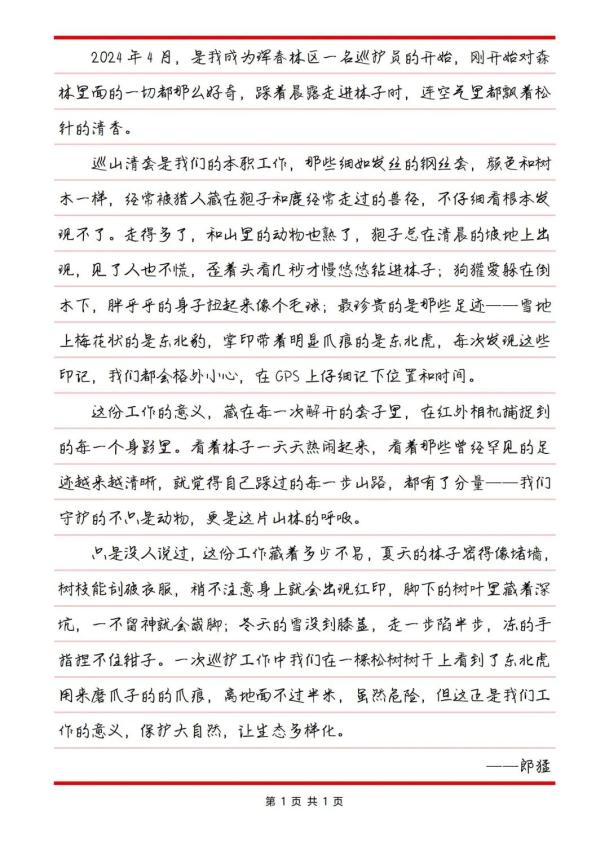 2024年4月，是我成为珲春林区一名巡护员的开始，刚开始对森
林里面的一切都那么好奇，踩着晨露走进林子时，连空气里都飘着松
针的清香。
巡山清套是我们的本职工作，那些细如发丝的钢丝套，颜色和树
木一样，经常被猎人藏在狍子和鹿经常走过的兽径，不仔细看根本发
现不了。走得多了，和山里的动物也熟了，狍子总在清晨的坡地上出
现，见了人也不慌，歪着头看几秒才慢悠悠钻进林子；狗獾爱躲在倒
木下，胖乎乎的身子扭起来像个毛球；最珍贵的是那些足迹——雪地
上梅花状的是东北豹，掌印带着明显爪痕的是东北虎，每次发现这些
印记，我们都会格外小心，在GPS上仔细记下位置和时间。
这份工作的意义，藏在每一次解开的套子里，在红外相机捕捉到
的每一个身影里。看着林子一天天热闹起来，看着那些曾经罕见的足
迹越来越清晰，就觉得自己踩过的每一步山路，都有了分量——我们
守护的不只是动物，更是这片山林的呼吸。
只是没人说过，这份工作藏着多少不易，夏天的林子密得像堵墙，
树枝能刮破衣服，稍不注意身上就会出现红印，脚下的树叶里藏着深
坑，一不留神就会崴脚；冬天的雪没到膝盖，走一步陷半步，冻的手
指捏不住钳子。一次巡护工作中我们在一棵松树树干上看到了东北虎
用来磨爪子的的爪痕，离地面不过半米，虽然危险，但这正是我们工
作的意义，保护大自然，让生态多样化。
——郎猛
第 1 页 共 1 页